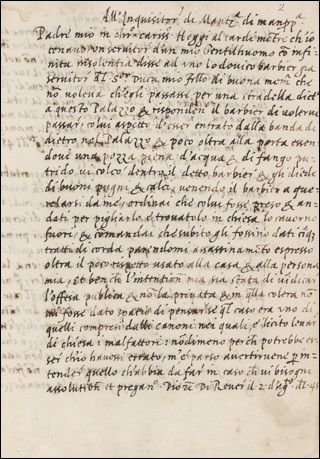 2
All'Inquisitor di Mant.a di man pp.a
Padre mio in chro cariss. Hoggi al tardi mentre ch'io
cenavo un servitor d'un mio Gentilhuomo con infi-
nita insolentia disse ad uno lodovico barbier gia
servitor dl S.or Duca mio fillo di buona mem. che
no voleva ch'egli passasse per una stradella dietro
a questo Palazzo & rispondendo il barbier di volervi
passar, colui aspettò d'esser entrato dalla banda di
dietro nel Palazzo & poco oltra alla porta essen-
dovi una pozza piena d'acqua & di fango pu-
trido vi colcò dentro il detto barbier & gli diede
di buoni pugni & calci, venendo il barbier a que-
relarsi da me, ordinai che colui fosse preso & an-
dati per pigliarlo, e trovatolo in chiesa lo cavorno
fuori & comandai che subito gli fossino dati cinq
tratti di corda parendomi assassinamento espresso
oltra il poco rispetto usato alla casa & alla persona
mia, Et bench l'intention mia sia stata di vindicar
l'offesa publica & no la privata & in qlla colera no
mi fosse dato spatio di pensar se ql caso era uno di
quelli compresi dalli canoni nei quali è licito levar
di chiesa i malfattori: nodimeno perch potrebbe es-
ser ch'io havessi errato, m'è parso avertirvene p in-
tender quello ch'abbia da far in caso ch vi bisogni
assolution, et pregan. Dio &c. Di Rover il 2 d'ag.o dl 45